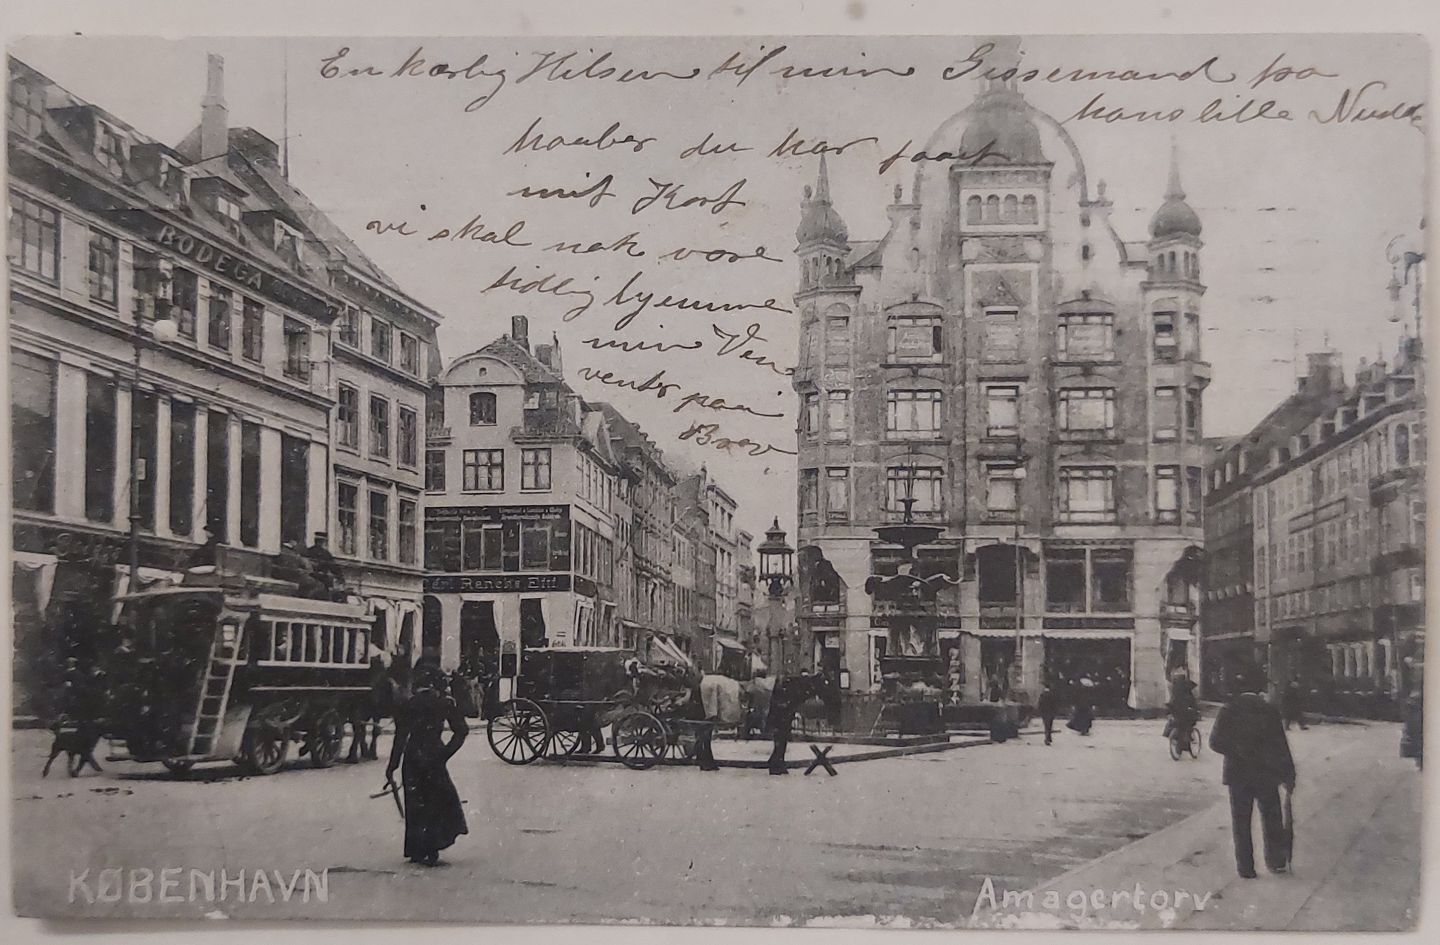 En kærlig Hilsen til min Gissemand fra
hans lille
haaber du har faaet
mit Kort
vi skal nok være
tidlig hjemme
min Ven
venter paa
Brev
BODEGA
Renchs Eftf
KØBENHAVN
Amagertorv.